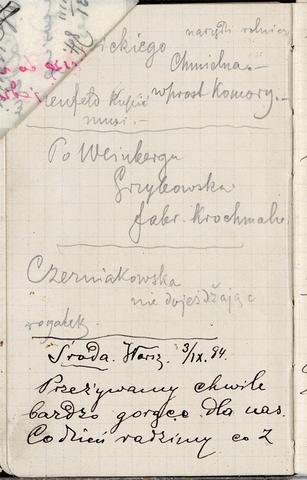 narzędzi rolnicz
ckiego
Chmielna.–
wprost Komory.–
enfeld Kupić
musi.–
Po Weinbergu
Grzybowska
fabr. Krochmalu.
Czerniakowska
nie dojeżdżając
rogatek.
Środa. Warsz. 3/IX. 94.
Przeżywamy chwile
bardzo gorące dla nas.
Codzień radzimy co z